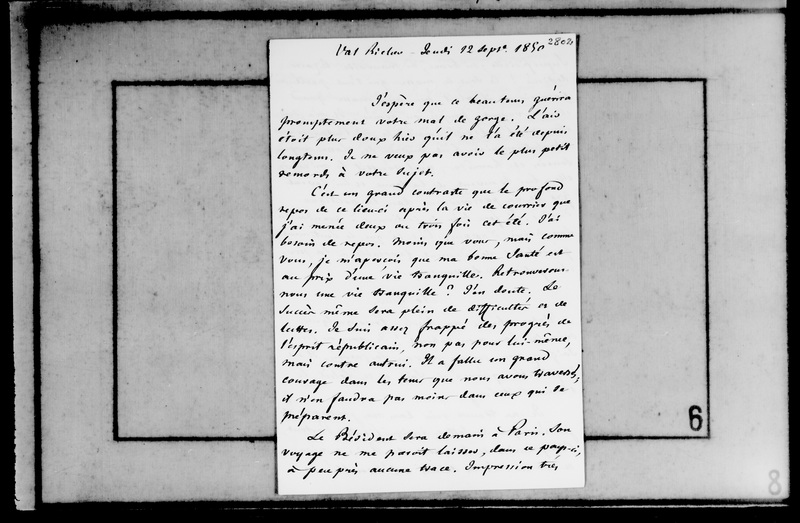 2802
Val Richer Jeudi 12 Sept. 1850
J'espère que ce beau tems guérira
promptement votre mal de gorge. L'air
étoit plus doux hier qu'il ne l'a été depuis
longtems. Je ne veux pas avoir le plus petit
remords à votre sujet.
C'est un grand contraste que le profond
repos de ce lieu-ci après la vie de courrier que
j'ai menée deux ou trois fois cet été. J'ai
besoin de repos. Moins que vous, mais comme
vous, je m'aperçois que ma bonne santé est
au prix d'une vie tranquille. Retrouverons-
nous une vie tranquille ? J'en doute. Le
succès même sera plein de difficultés et de
luttes. Je suis assez frappé des progrès de
l'esprit républicain, non pas pour lui-même,
mais contre autrui. Il a fallu un grand
courage dans les tems que nous avons traversés ;
il n'en faudra pas moins dans ceux qui se
préparent.
Le Président sera demain à Paris. Son
voyage ne me paroît laisser, dans ce pays-ci,
à peu près aucune trace. Impression très
6
8